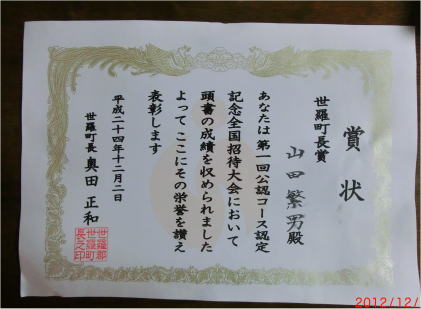 賞状
世羅町長賞
山田繁男殿
あなたは第一回公認コース認定
記念全国招待大会において
頭書の成績を収められました
よって ここにその栄誉を讃え
表彰します
平成二十四年十二月二日
世羅町長 奥田 正和
世羅郡
世羅町
長之印
2012/12/